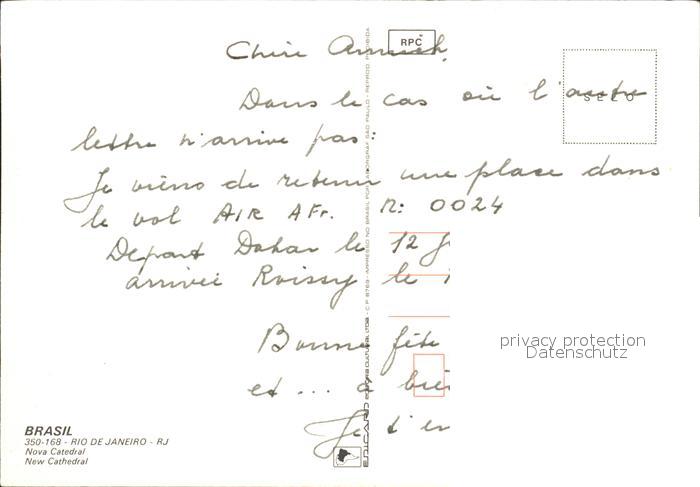 RPC
SELO
Chère
Dans le cas où l'autre
lettre n'arrive pas:
Je viens de retenir une place dans
le vol AIR AFr. N: 0024
Depart Dakar le 12
arrivée Roissy le
Bonne fête
et ... à
Je t'
privacy protection
Datenschutz
BRASIL
350-168 - RIO DE JANEIRO - RJ
Nova Catedral
New Cathedral